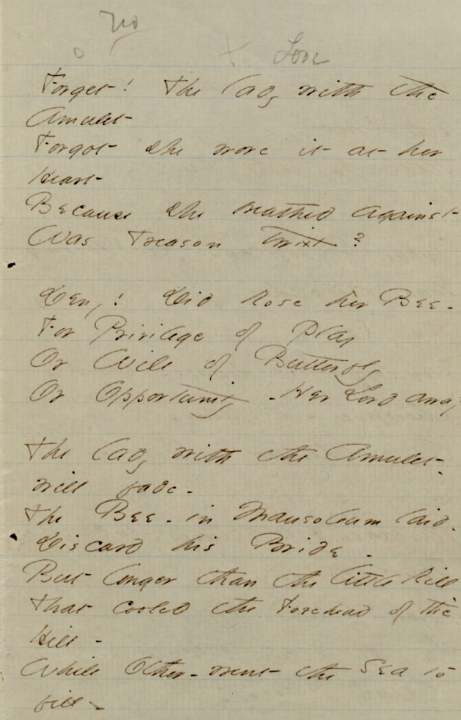 no
x Love
Forget! The lady with the
Amulet
Forgot she wore it at her
Heart
Because she breathed against
Was Treason twixt?

Deny! Did Rose her Bee -
For Privilege of Play
Or Wile of Butterfly
Or Opportunity - Her Lord away

The lady with the Amulet -
will fade -
The Bee - in Mausoleum laid -
Discard his Bride -
But longer than the little Rill
That cooled the Forehead of the
Hill -
While Other - went the Sea to
fill -